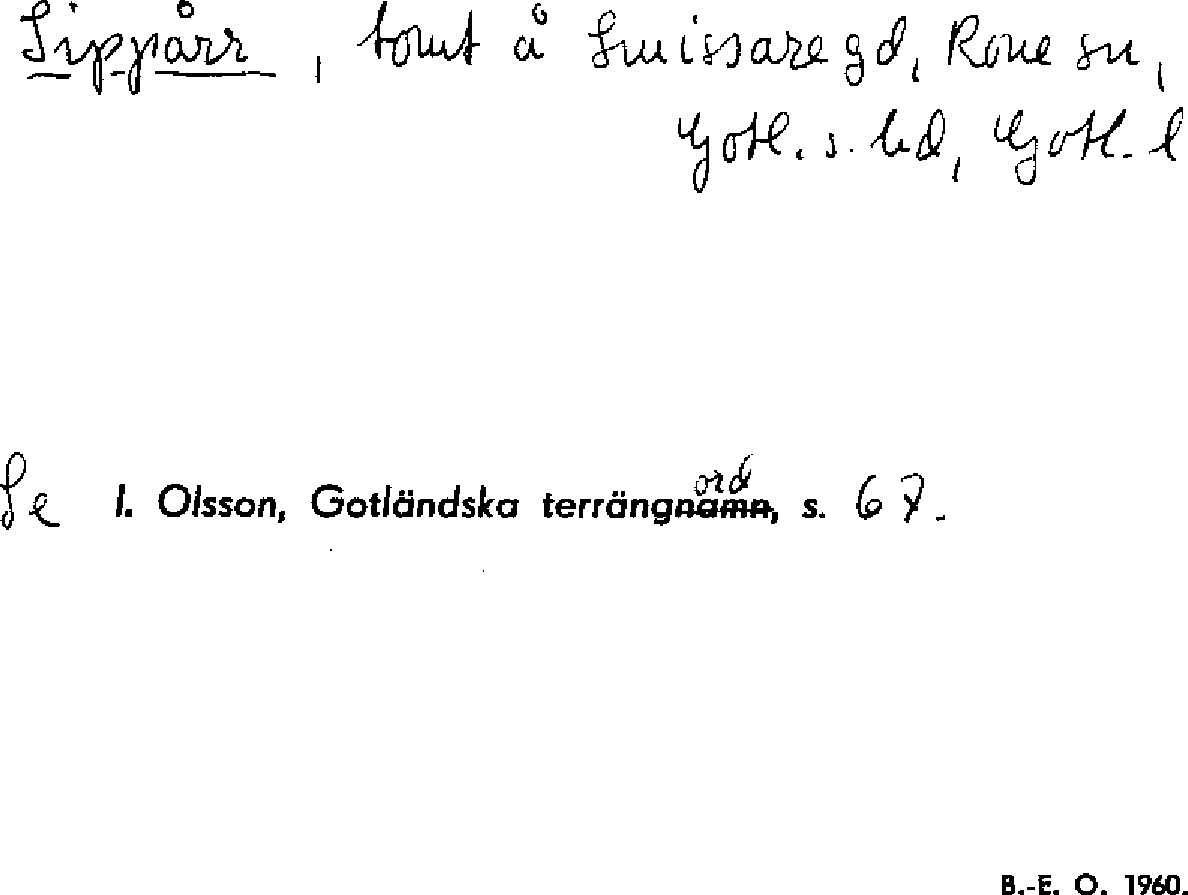 Sippårr, tomt å Smissaregd, Rone sn,
Gotl. s. hd, Gotl. l
Se I. Olsson, Gotländska terrängnamn, s. 67.
ord
B.-E. O. 1960.